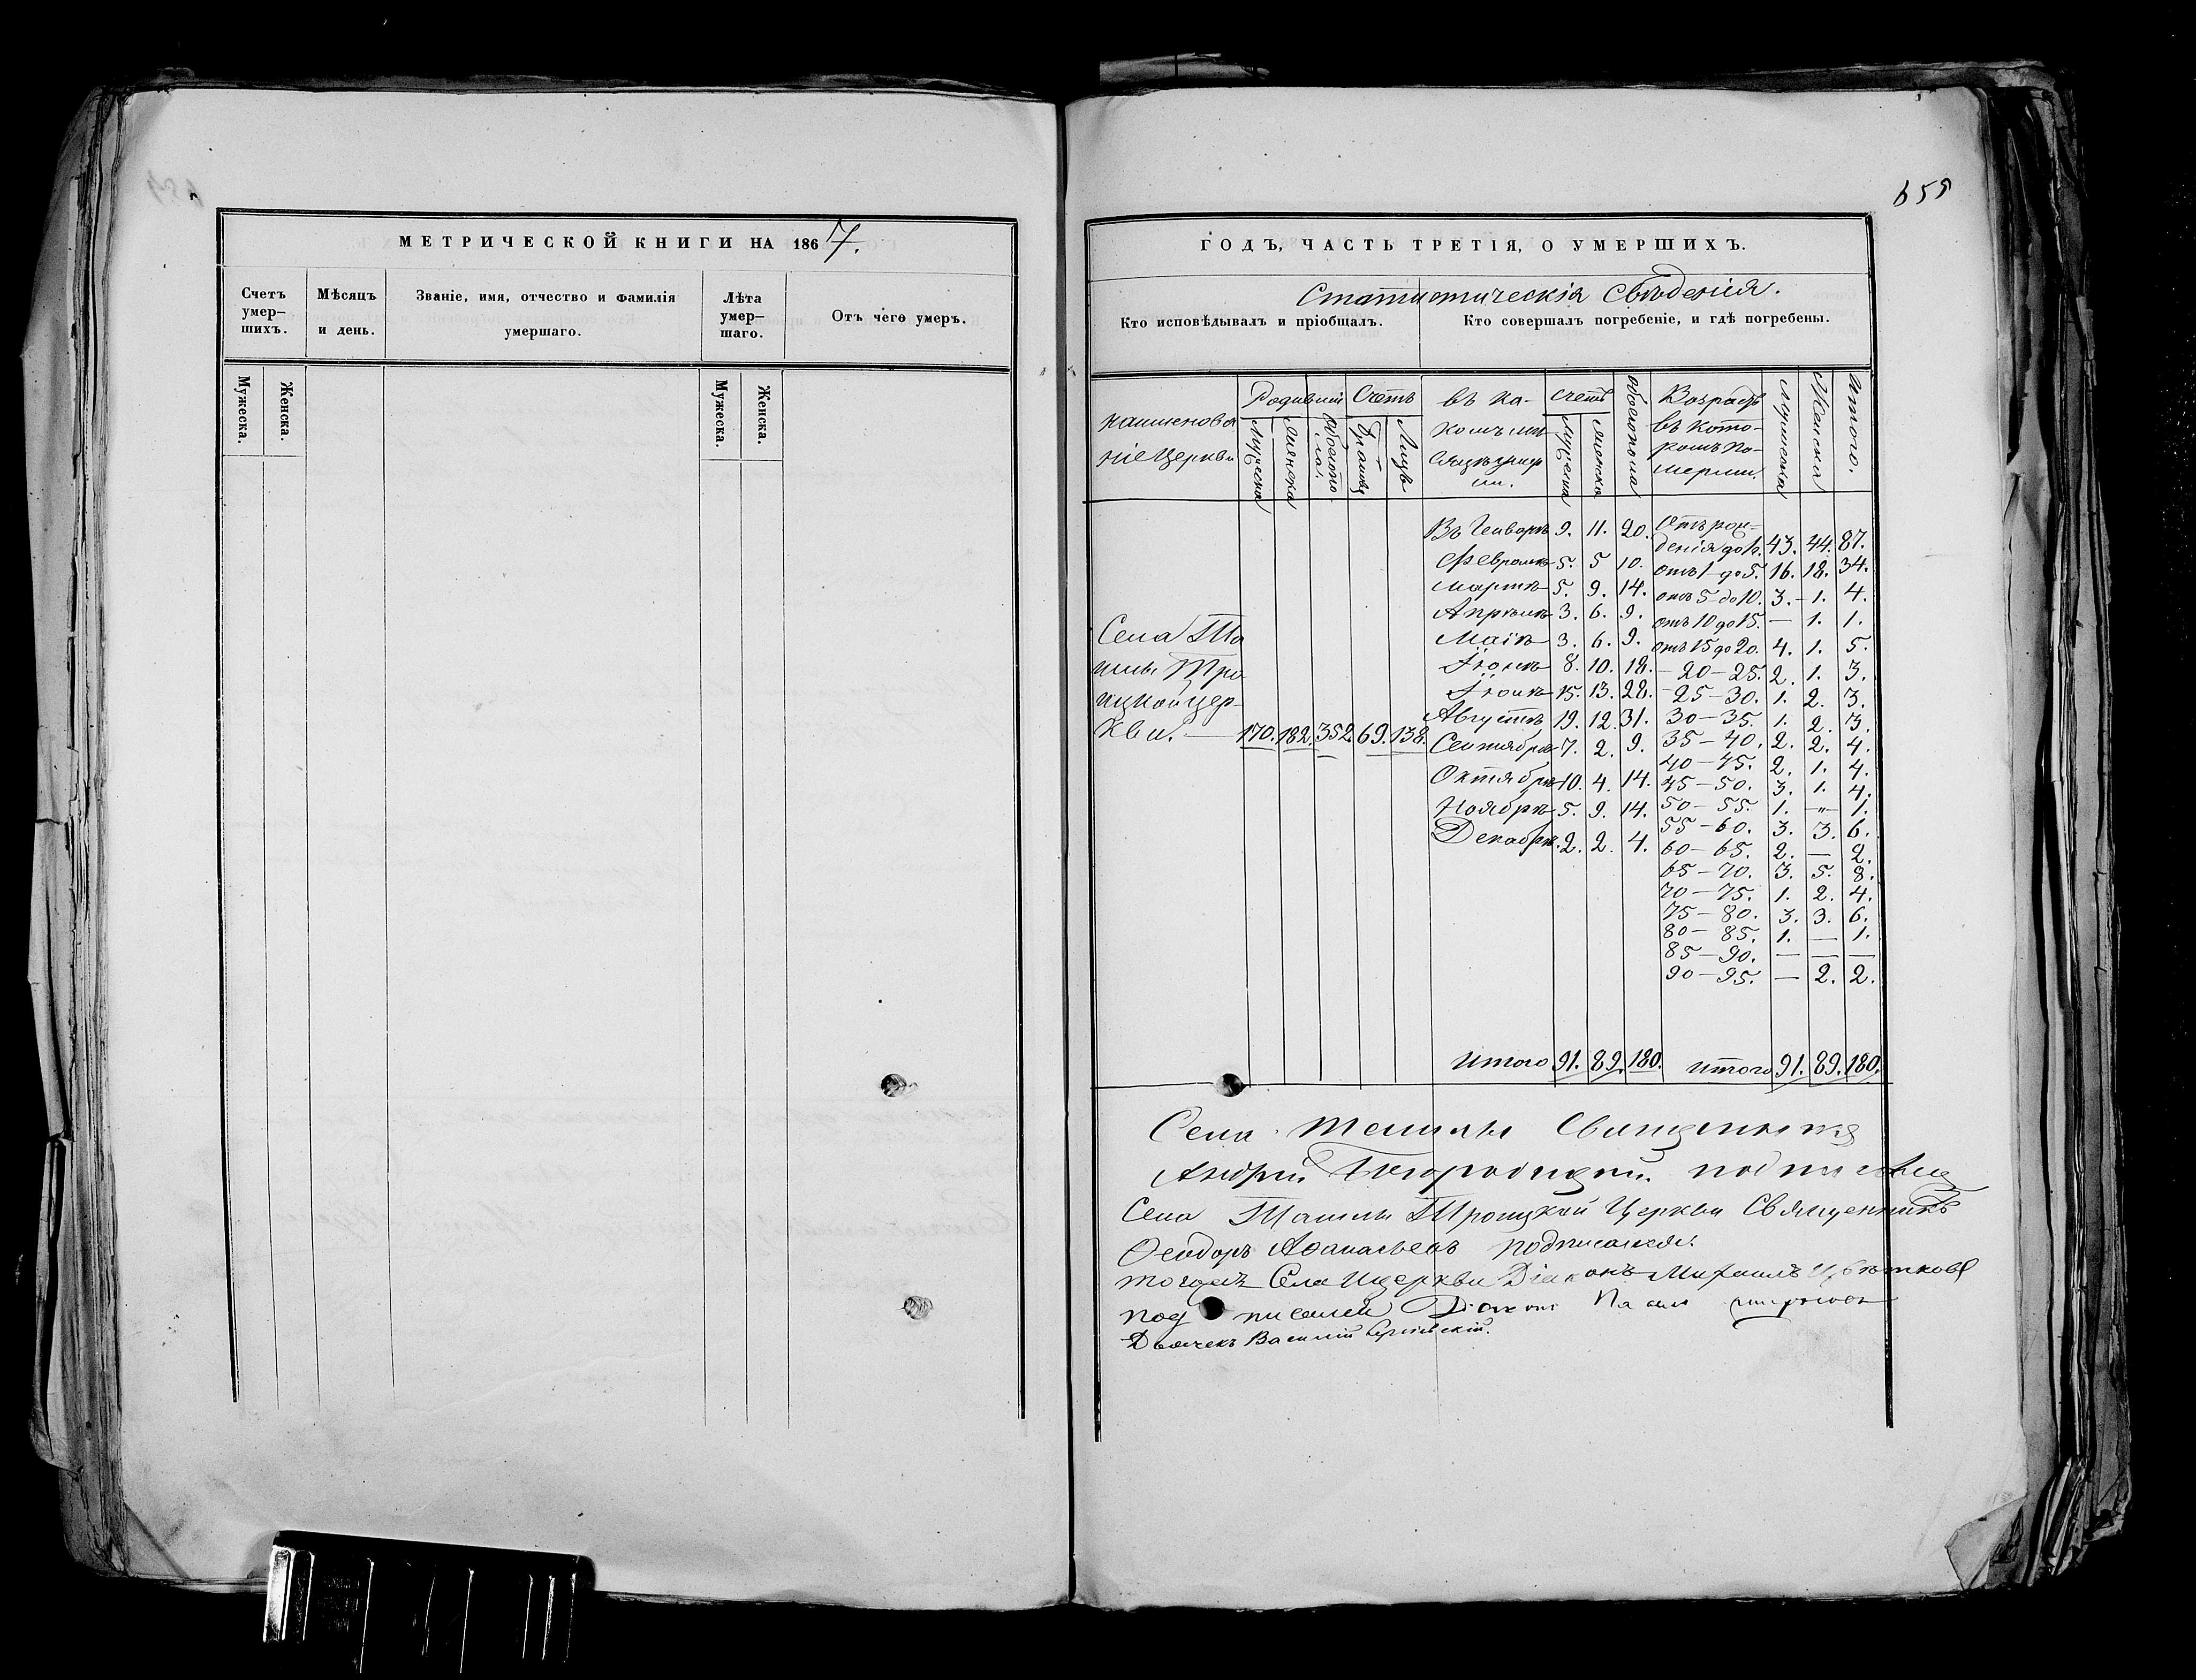 659
МЕТРИЧЕСКОЙ КНИГИ НА 1867.
Счетъ умер-шихъ.
Мѣсяцъ и день.
Званіе, имя, отчество и фамилія умершаго.
Лѣта умер-шаго.
Отъ чего умеръ.
Мужеска.
Женска.
Мужеска.
Женска.
ГОДЪ, ЧАСТЬ ТРЕТІЯ, О УМЕРШИХЪ.
Статистическія Свѣденія.
Кто исповѣдывалъ и пріобщалъ.
Кто совершалъ погребеніе, и гдѣ погребены.
Наименова
ніе Церкви
Родивший
Мужеска
Женска
Обоего пола.
Счетъ
Браковъ
Лицъ
въ ка-
комъ мѣ-
сяцѣ умер
ли.
счетъ
Мужеска
Женска
Обоего пола
Возрастъ
въ кото-
ромъ по-
мерли.
Мужеска
Женска
Итого.
Села Та
шлы Тро
ицкой цер-
кви. — 170. 182. 352. 69. 138.
Въ Генварѣ 9. 11. 20.
Февралѣ 5. 5 10.
Мартѣ 5. 9. 14.
Апрѣлѣ 3. 6. 9.
Маіѣ 3. 6. 9.
Іюнѣ 8. 10. 18.
Іюлѣ 15. 13. 28.
Августѣ 19. 12. 31.
Сентябрѣ 7. 2. 9.
Октябрѣ 10. 4. 14.
Ноябрѣ 5. 9. 14.
Декабрѣ. 2. 2. 4.
Итого 91. 89. 180.
Отъ рож-
денія до 1го. 43. 44. 87.
отъ 1 до 5. 16. 18. 34.
отъ 5 до 10. 3. 1. 4.
отъ 10 до 15. — 1. 1.
отъ 15 до 20. 4. 1. 5.
20 — 25. 2. 1. 3.
25 — 30. 1. 2. 3.
30 — 35. 1. 2. 3.
35 — 40. 2. 2. 4.
40 — 45. 2. 1. 4.
45 — 50. 3. 1. 4.
50 — 55. 1. —„— 1.
55 — 60. 3. 3. 6.
60 — 65. 2. — 2.
65 — 70. 3. 5. 8.
70 — 75. 1. 2. 4.
75 — 80. 3. 3. 6.
80 — 85. 1. — 1.
85 — 90. — — —
90 — 95. — 2. 2.
итого 91. 89. 180.
Села Ташлы Священникъ
Андрей
Села Ташлы Троицкой Церкви Священникъ
Ѳеодоръ Аѳанасьевъ подписался.
тогоже Села и церкви Діаконъ Михаилъ Цвѣтковъ
подписалси Діаконъ
Дьячекъ Василій